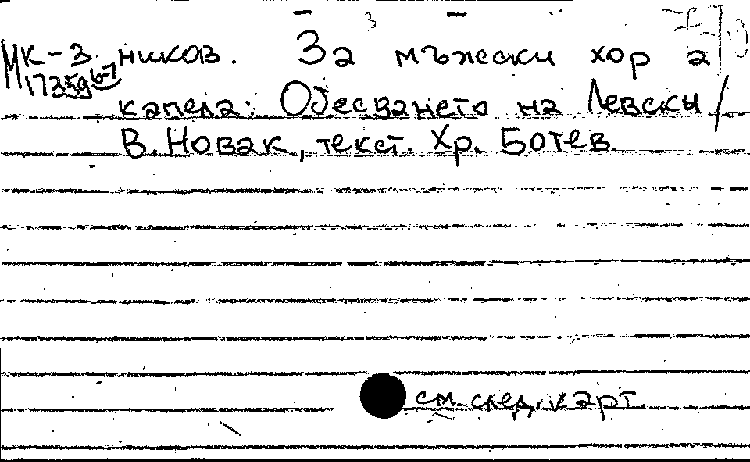 МК-3. ников. За мъжески хор а
173596-7
капела: Обесването на Левски /
В. Новак, текст. Хр. Ботев.
см. след. карт.